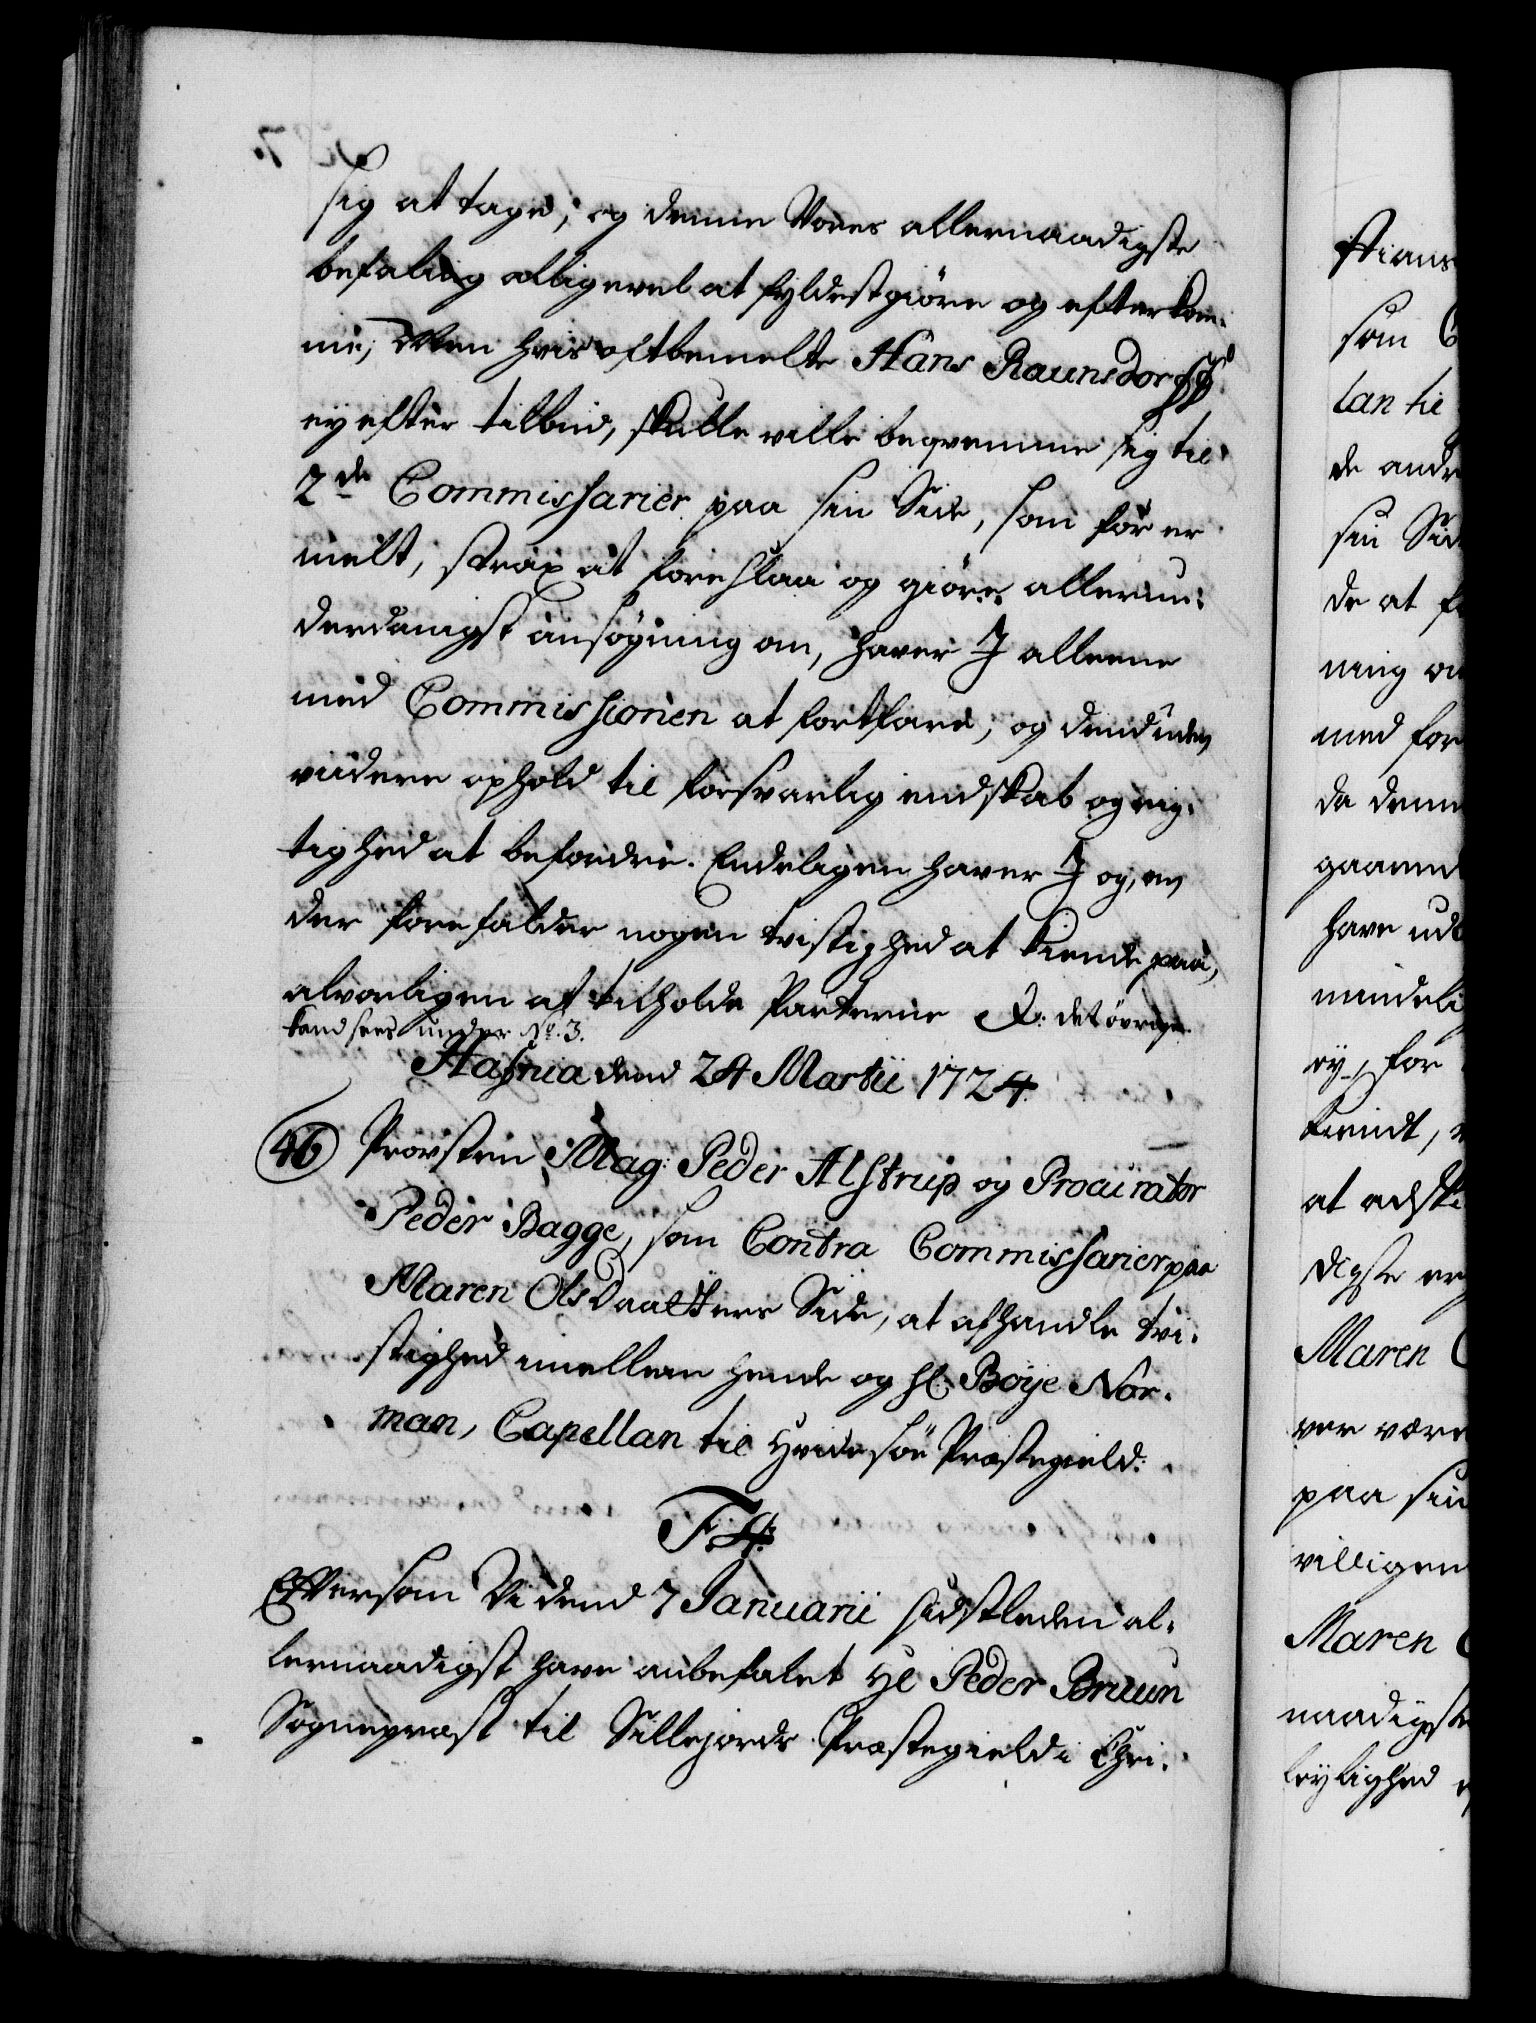 sig at tage; og denne Vores allernaadigste
befaling alligevel at fyldestgiöre og efterkom-
me; Men hvis oftbemelte Hans Raunsdorff
ey efter tilbud, skulle ville beqvemme sig til
2de Commissarier paa sin Side, som för er
melt, strax at foreslaa og giöre allerun-
derdanigst ansögning om, haver I alleene
med Commissionen at fortfare, og dend uden
viidere ophold til forsvarlig endskab og rig-
tighed at befordre. Endeligen haver I og, om
der forefalder nogen tvistighed at kiende paa,
alvorligen at tilholde Parterne &: det övrige
kand sees under No. 3.
Hafnia dend 24 Martii 1724.
46 Provsten Mag: Peder Alstrup og Procurator
Peder Bagge, som Contra Commissarier paa
Maren OlsDaatters Side, at afhandle tvi-
stighed imellem hende og hl. Boÿe Nor-
man, Capellan til Hvidesöe Præstegield.
F. 4.
Eftersom Vi dend 7 Januarii sidstleden al-
lernaadigst have anbefalet Hl Peder Bruun
Sognepræst til Sillejords Præstegield i Chri-
stians
som C
lan til
de andr
sin Sid
de at f
ning o
med for
da denn
gaaend
have ud
mindeli
ey, for
kiendt,
at adski
digste er
Maren
ver være
paa sin
villigen
Maren
naadigste
leylighed